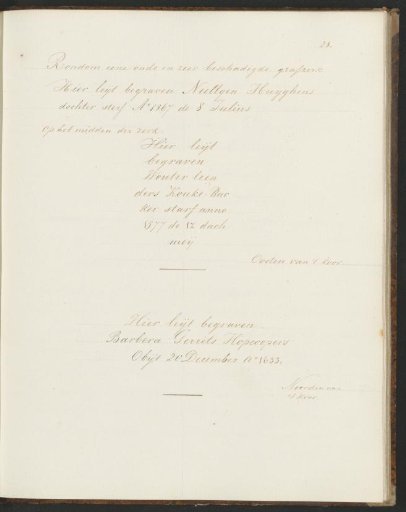 23.
Rondom eene oude en zeer beschadigde grafzerk
Hier leyt begraven Neeltgen Huyghens
dochter sterf Aº 1567 de 8 Julius
Op het midden der zerk
Hier leyt
begraven
Wouter leen
ders Kouke Bac
ker starf anno
1577 de 12 dach
meij
Oosten van 't koor
Hier leyt begraven
Barbera Gerrits
Obyt 20 December Aº 1633.
Noorden van
't koor